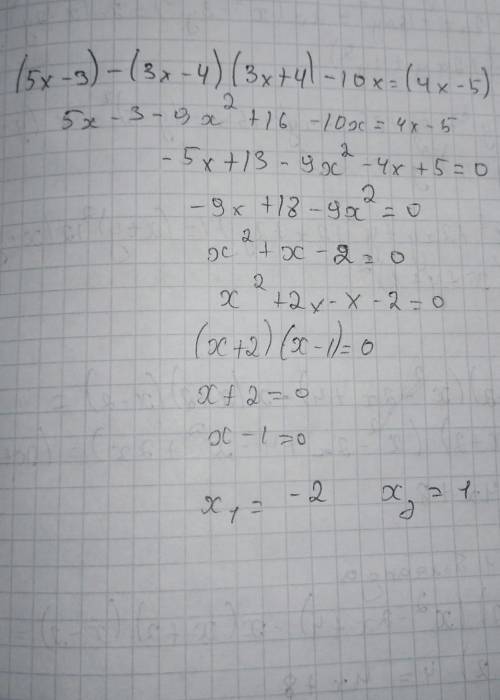 (5x-3)-(3x-4)(3x+4)-10x=(4x-5)
5x-3-9x²+16-10x=4x-5
-5x+13-9x²-4x+5=0
-9x+18-9x²=0
x²+x-2=0
x²+2x-x-2=0
(x+2)(x-1)=0
x+2=0
x-1=0
x₁=-2 x₂=1